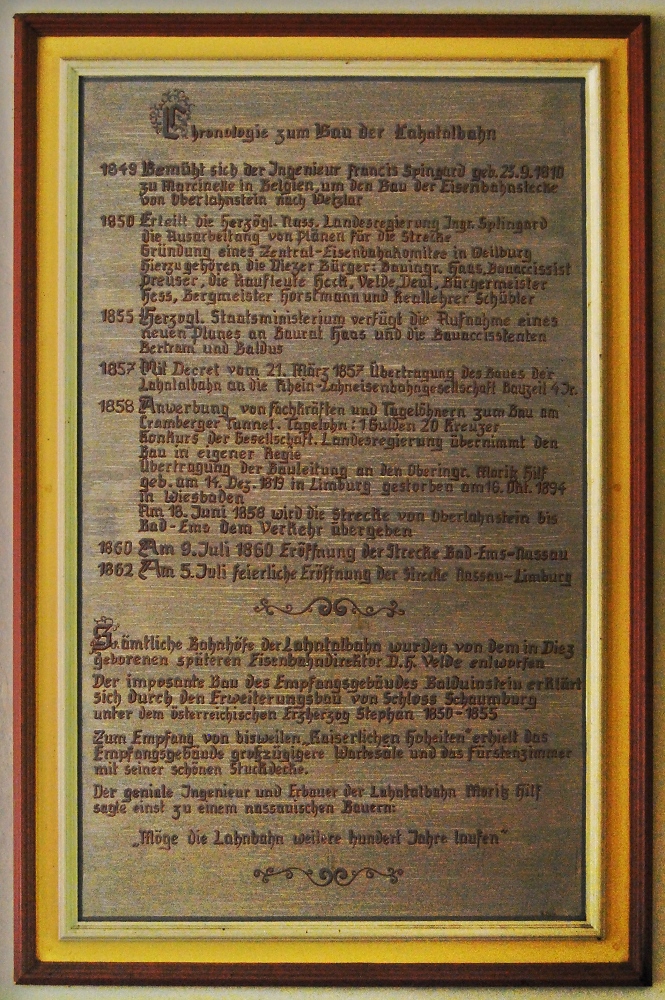 Chronologie zum Bau der Lahntalbahn
1849 Bemüht sich der Ingenieur Francis Spingard geb. 25.9.1810
zu Marcinelle in Belgien, um den Bau der Eisenbahnstecke
von Oberlahnstein nach Wetzlar
1850 Erteilt die Herzögl. Nass. Landesregierung Ingr. Splingard
die Ausarbeitung von Plänen für die Strecke
Gründung eines Zentral-Eisenbahnkomitee in Weilburg
Hierzu gehören die Diezer Bürger: Bauingr. Haas, Bauaccissist
Preußer, die Kaufleute Heck, Velde, Deul, Bürgermeister
Hess, Bergmeister Horstmann und Reallehrer Schübler
1855 Herzogl. Staatsministerium verfügt die Aufnahme eines
neuen Planes an Baurat Haas und die Bauaccisstenten
Bertram und Baldus
1857 Mit Decret vom 21. März 1857 Übertragung des Baues der
Lahntalbahn an die Rhein-Lahneisenbahngesellschaft Bauzeit 4 Jr.
1858 Anwerbung von Fachkräften und Tagelöhnern zum Bau am
Cramberger Tunnel. Tagelohn: 1 Gulden 20 Kreuzer
Konkurs der Gesellschaft. Landesregierung übernimmt den
Bau in eigener Regie
Übertragung der Bauleitung an den Oberingr. Moritz Hilf
geb. am 14. Dez. 1819 in Limburg gestorben am 16. Okt. 1894
in Wiesbaden
Am 18. Juni 1858 wird die Strecke von Oberlahnstein bis
Bad-Ems dem Verkehr übergeben
1860 Am 9. Juli 1860 Eröffnung der Strecke Bad-Ems-Nassau
1862 Am 5. Juli feierliche Eröffnung der Strecke Nassau-Limburg
Sämtliche Bahnhöfe der Lahntalbahn wurden von dem in Diez
geborenen späteren Eisenbahndirektor D.H. Velde entworfen
Der imposante Bau des Empfangsgebäudes Balduinstein erklärt
sich durch den Erweiterungsbau von Schloss Schaumburg
unter dem österreichischen Erzherzog Stephan 1850-1855
Zum Empfang von bisweilen „Kaiserlichen Hoheiten" erhielt das
Empfangsgebäude großzügigere Wartesäle und das Fürstenzimmer
mit seiner schönen Stuckdecke.
Der geniale Ingenieur und Erbauer der Lahntalbahn Moritz Hilf
sagte einst zu einem nassauischen Bauern:
„Möge die Lahnbahn weitere hundert Jahre laufen"